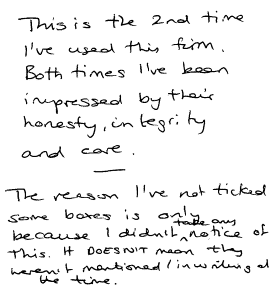 This is the 2nd time
I've used this firm.
Both times I've been
impressed by their
honesty, integrity
and care.
The reason I've not ticked
some boxes is only
because I didn't take any notice of
this. It DOESN'T mean they
weren't mentioned / in writing at
the time.